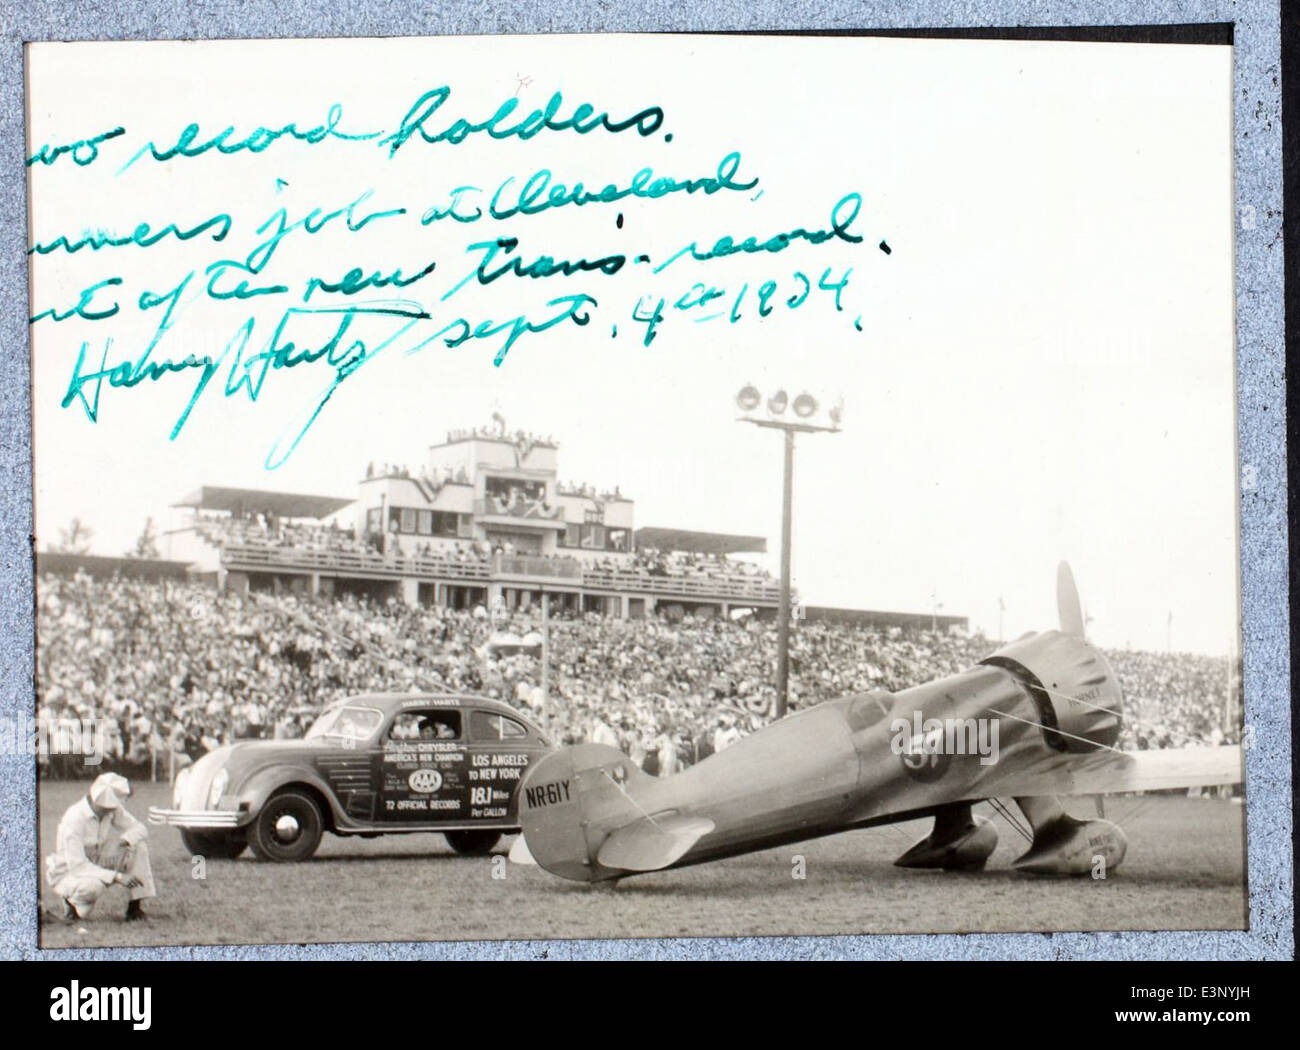 wo record holders.
urners job at Cleveland,
rt of the new trans. record.
Harry Hartz sept. 4th 1934.
HARRY HARTZ
Airflow CHRYSLER
AMERICA'S NEW CHAMPION
CLOSED STOCK CAR
AAA
HOLDER OF
72 OFFICIAL RECORDS
LOS ANGELES
TO NEW YORK
18.1 Miles
Per GALLON
NR-61Y
57
HORNET
a
alamy
Image ID: E3NYJH
www.alamy.com